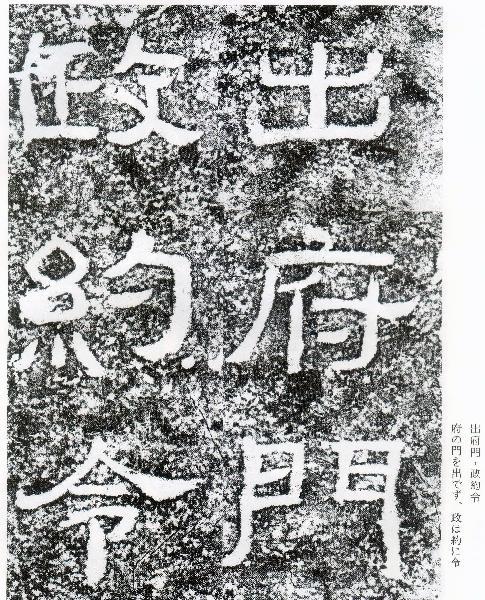 出府門
政約令
出府門。政約令
府の門を出でず、政は約に令